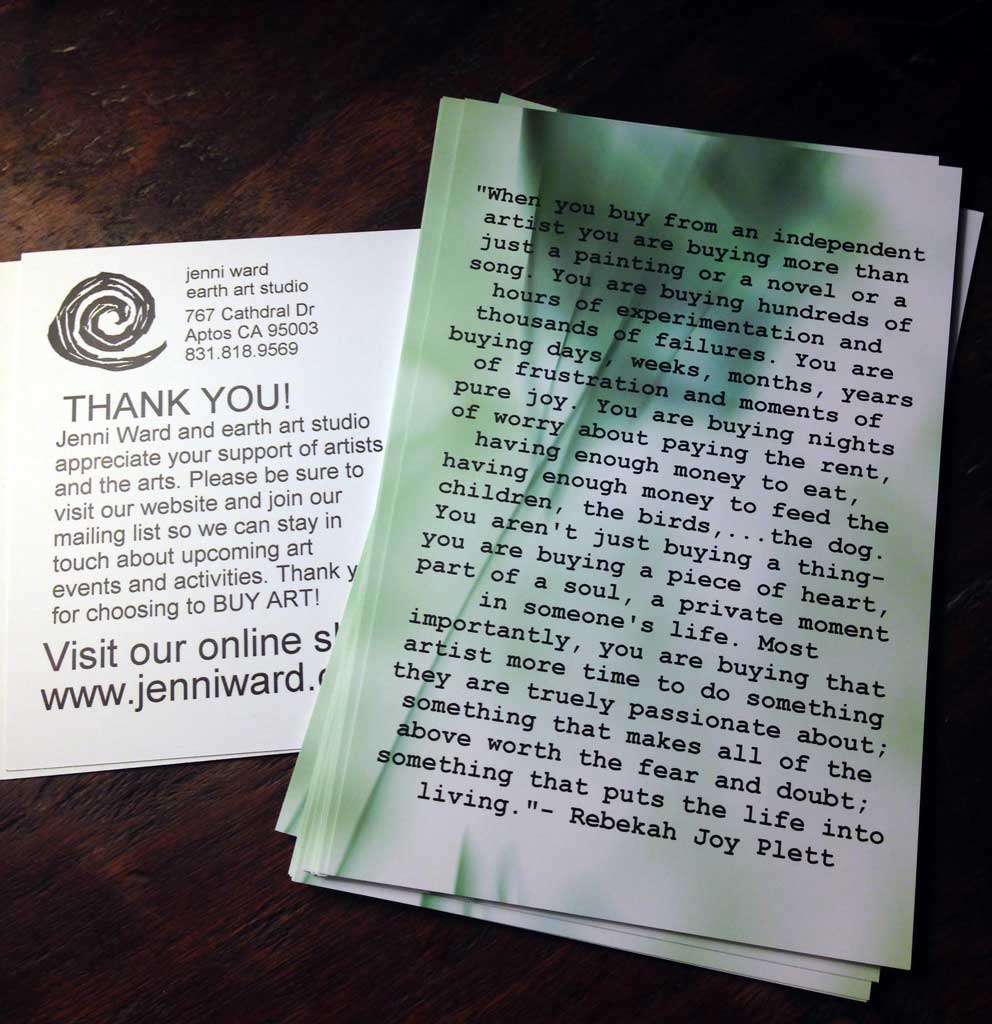 jenni ward
earth art studio
767 Cathdral Dr
Aptos CA 95003
831.818.9569
THANK YOU!
Jenni Ward and earth art studio
appreciate your support of artists
and the arts. Please be sure to
visit our website and join our
mailing list so we can stay in
touch about upcoming art
events and activities. Thank y
for choosing to BUY ART!
Visit our online s
www.jenniward.
"When you buy from an independent
artist you are buying more than
just a painting or a novel or a
song. You are buying hundreds of
hours of experimentation and
thousands of failures. You are
buying days, weeks, months, years
of frustration and moments of
pure joy. You are buying nights
of worry about paying the rent,
having enough money to eat,
having enough money to feed the
children, the birds,...the dog.
You aren't just buying a thing-
you are buying a piece of heart,
part of a soul, a private moment
in someone's life. Most
importantly, you are buying that
artist more time to do something
they are truely passionate about;
something that makes all of the
above worth the fear and doubt;
something that puts the life into
living."- Rebekah Joy Plett